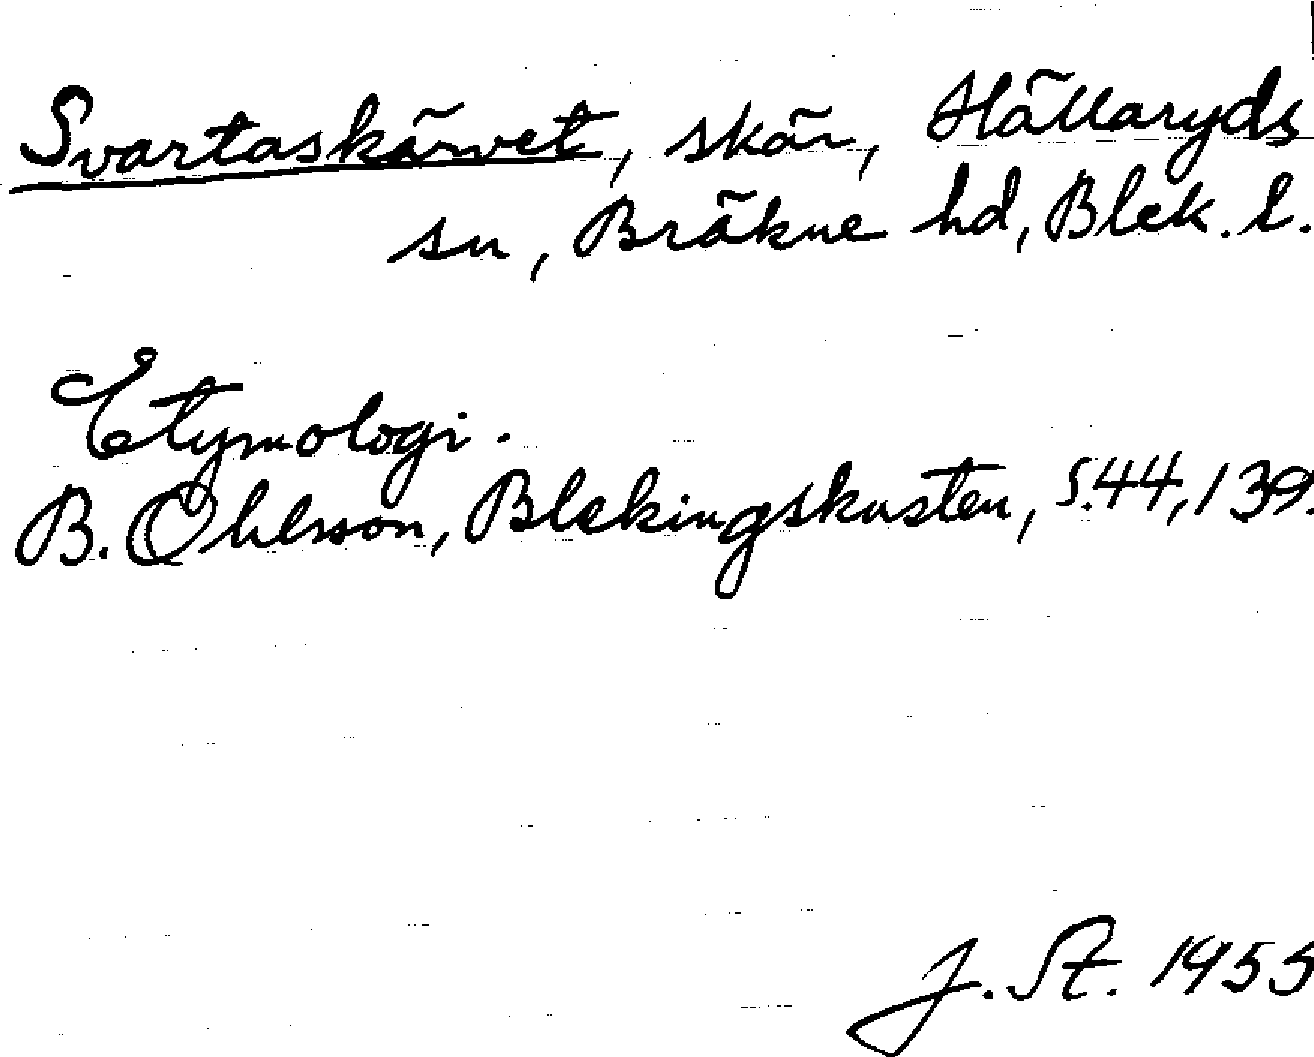 Svartaskärvet, skär, Hällaryds
sn, Bräkne hd, Blek. l.
Etymologi.
B. Ohlsson, Blekingskusten, s.44, 139.
J. St. 1955